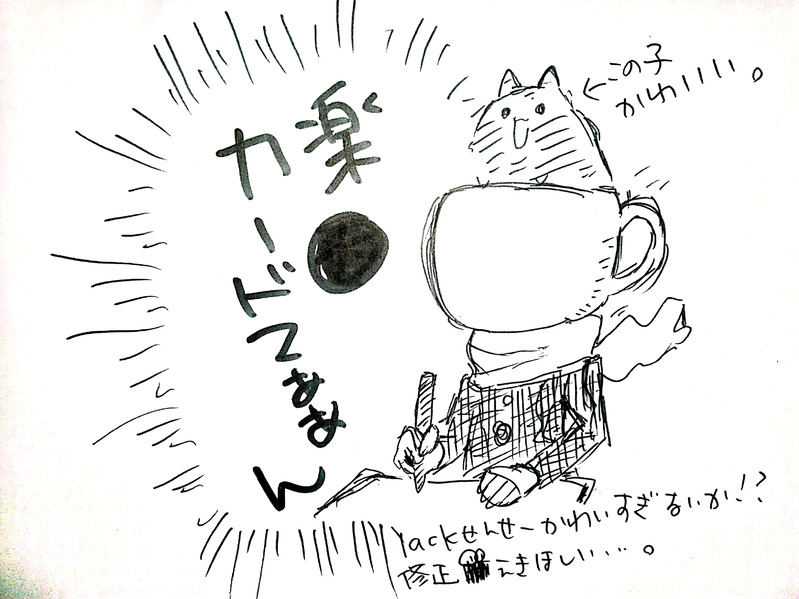 楽●
カードマああん
←この子
かわいい。
yackせんせーかわいすぎないか!?
修正えきほしい…。